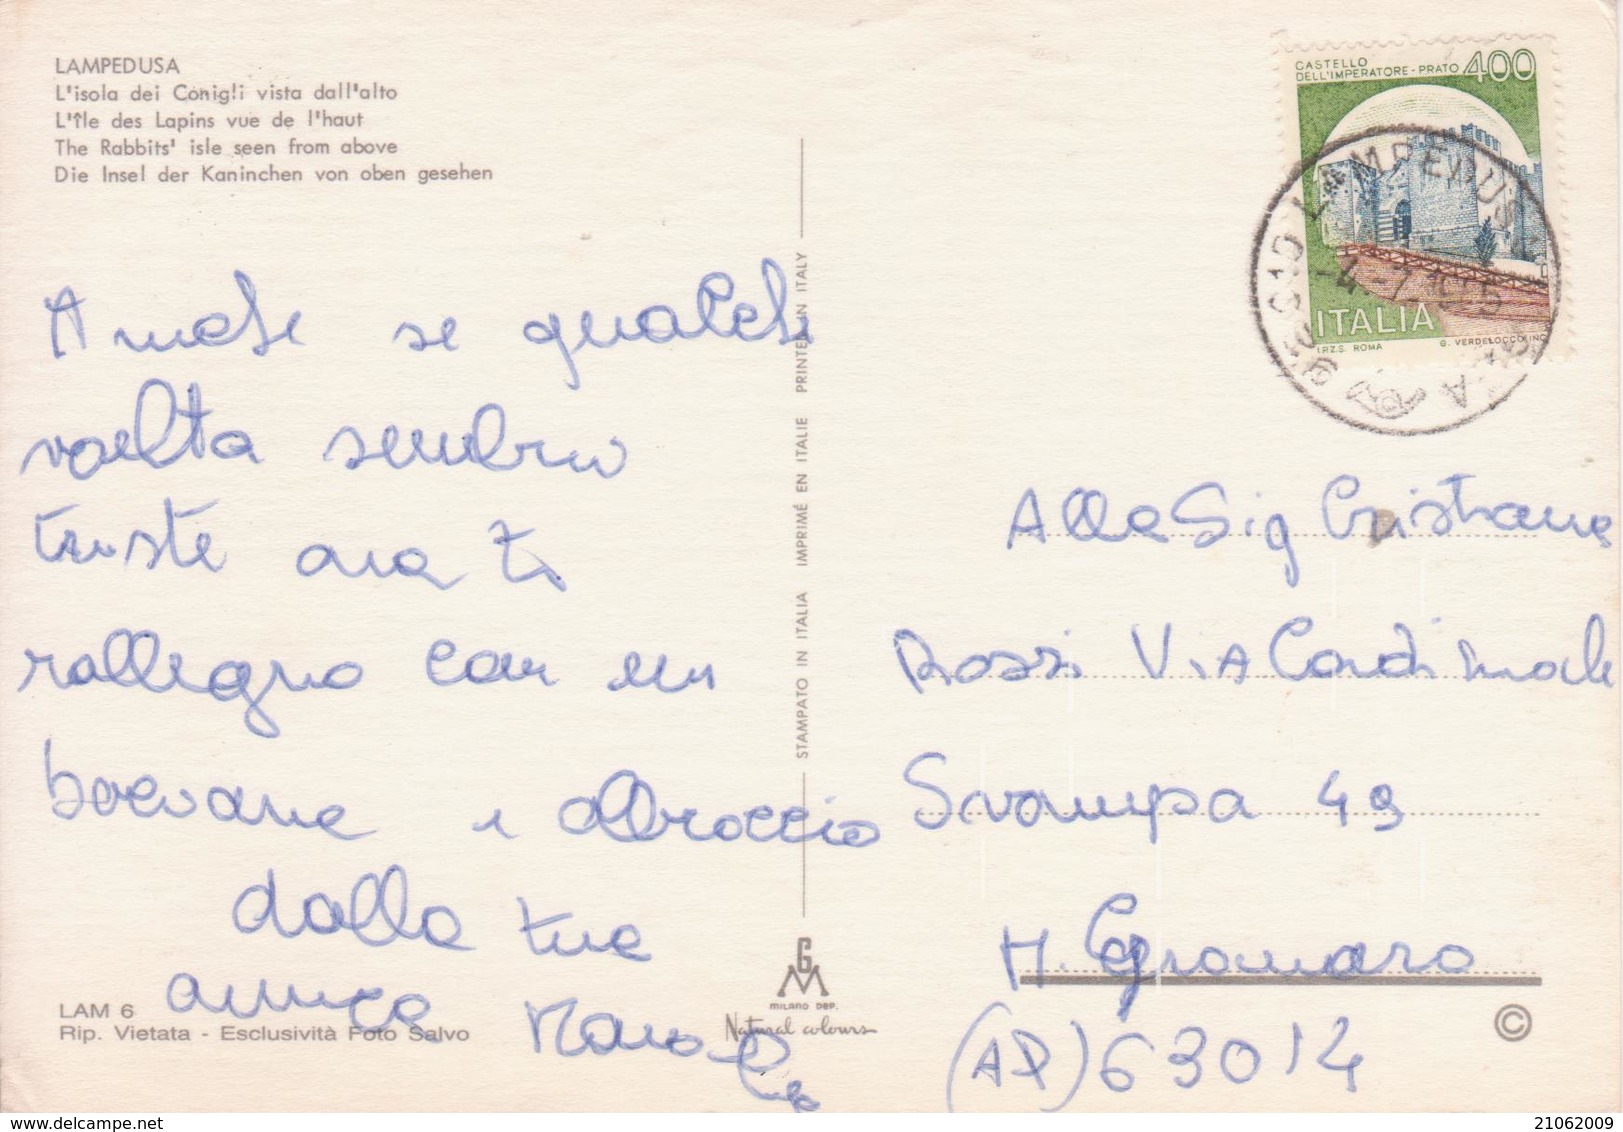 LAMPEDUSA
L'isola dei Conigli vista dall'alto
L'île des Lapins vue de l'haut
The Rabbits' isle seen from above
Die Insel der Kaninchen von oben gesehen
CASTELLO
DELL'IMPERATORE - PRATO 400
ITALIA
I.P.Z.S. ROMA G. VERDELOCCO INC.
LAMPEDUSA
Anche se qualche
volta sembro
triste ora ti
rallegro con un
bacione e abbraccio
dalla tua
amica
STAMPATO IN ITALIA IMPRIMÉ EN ITALIE PRINTED IN ITALY
Alla Sig Cristiana
Rossi Via Cardinale
Svampa 49
M. Egranaro
(AP) 63014
GM
MILANO DEP.
Natural colours
LAM 6
Rip. Vietata - Esclusività Foto Salvo
©
delcampe.net
21062009